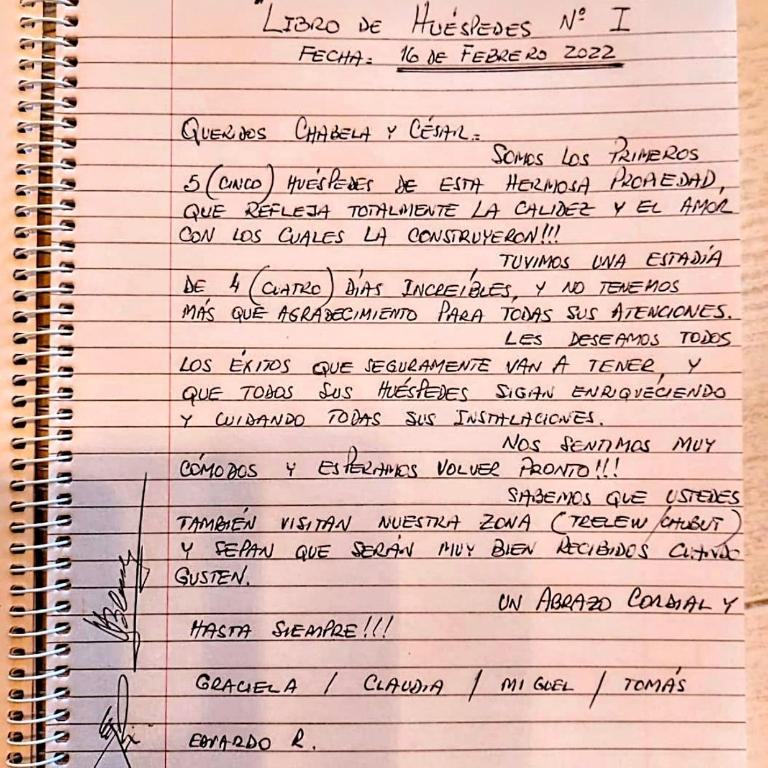 "LIBRO DE HUÉSPEDES Nº I
FECHA: 16 DE FEBRERO 2022
QUERIDOS CHABELA Y CÉSAR:
SOMOS LOS PRIMEROS
5 (CINCO) HUÉSPEDES DE ESTA HERMOSA PROPIEDAD,
QUE REFLEJA TOTALMENTE LA CALIDEZ Y EL AMOR
CON LOS CUALES LA CONSTRUYERON!!!
TUVIMOS UNA ESTADÍA
DE 4 (CUATRO) DÍAS INCREÍBLES, Y NO TENEMOS
MÁS QUE AGRADECIMIENTO PARA TODAS SUS ATENCIONES.
LES DESEAMOS TODOS
LOS ÉXITOS QUE SEGURAMENTE VAN A TENER, Y
QUE TODOS SUS HUÉSPEDES SIGAN ENRIQUECIENDO
Y CUIDANDO TODAS SUS INSTALACIONES.
NOS SENTIMOS MUY
CÓMODOS Y ESPERAMOS VOLVER PRONTO!!!
SABEMOS QUE USTEDES
TAMBIÉN VISITAN NUESTRA ZONA (TRELEW/CHUBUT)
Y SEPAN QUE SERÁN MUY BIEN RECIBIDOS CUANDO
GUSTEN.
UN ABRAZO CORDIAL Y
HASTA SIEMPRE!!!
GRACIELA / CLAUDIA / MIGUEL / TOMÁS
EDUARDO R.